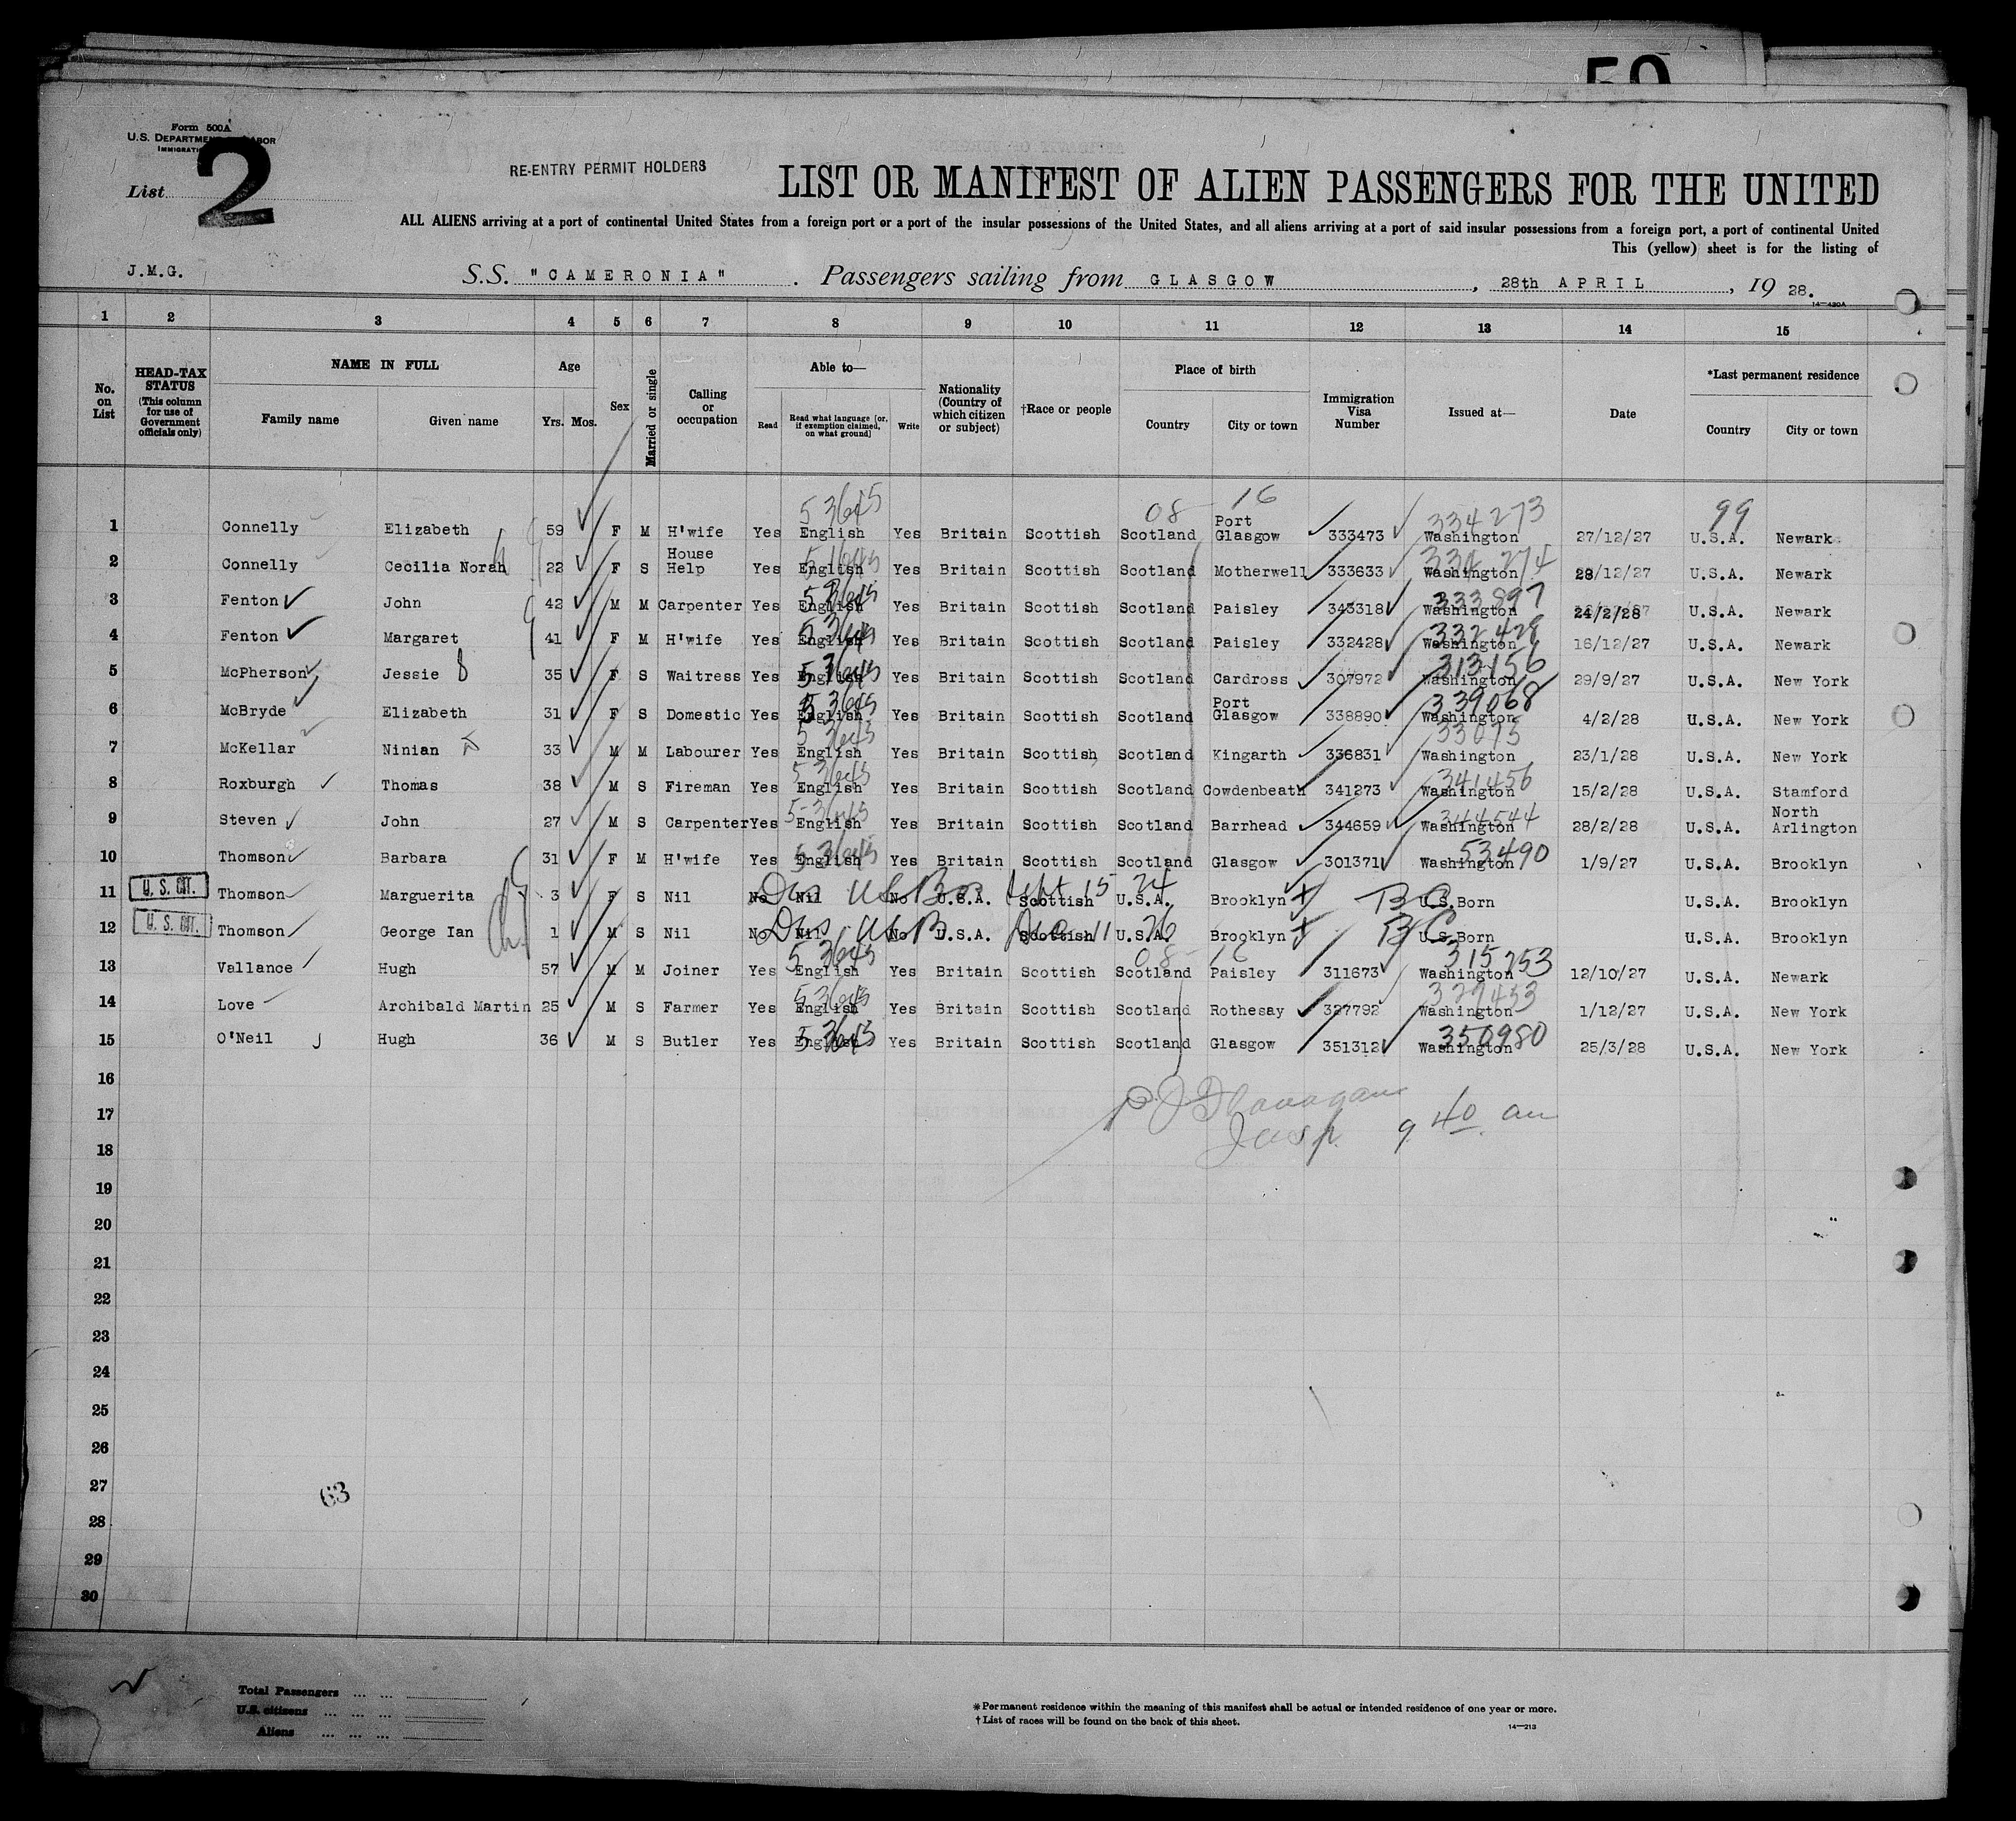 Form 500A
U.S. DEPARTMENT
2
List
RE-ENTRY PERMIT HOLDERS
LIST OR MANIFEST OF ALIEN PASSENGERS FOR THE UNITED
ALL ALIENS arriving at a port of continental United States from a foreign port or a port of the insular possessions of the United States, and all aliens arriving at a port of said insular possessions from a foreign port, a port of continental United
This (yellow) sheet is for the listing of
J.M.G.
S.S. "CAMERONIA". Passengers sailing from GLASGOW, 28th APRIL, 19 28.
14-420A
1 2 3 4 5 6 7 8 9 10 11 12 13 14 15
No. on List
HEAD-TAX STATUS (This column for use of Government officials only)
NAME IN FULL
Family name Given name
Age
Yrs. Mos.
Sex
Married or single
Calling or occupation
Able to—
Read Read what language [or, if exemption claimed, on what ground] Write
Nationality (Country of which citizen or subject)
†Race or people
Place of birth
Country City or town
Immigration Visa Number
Issued at—
Date
*Last permanent residence
Country City or town
08 16 99
1 Connelly Elizabeth 59 F M H'wife Yes English Yes Britain Scottish Scotland Port Glasgow 333473 Washington 334273 27/12/27 U.S.A. Newark
2 Connelly Cecilia Norah 22 F S House Help Yes English Yes Britain Scottish Scotland Motherwell 333633 Washington 334274 28/12/27 U.S.A. Newark
3 Fenton John 42 M M Carpenter Yes English Yes Britain Scottish Scotland Paisley 343318 Washington 333897 24/2/28 U.S.A. Newark
4 Fenton Margaret 41 F M H'wife Yes English Yes Britain Scottish Scotland Paisley 332428 Washington 332428 16/12/27 U.S.A. Newark
5 McPherson Jessie 35 F S Waitress Yes English Yes Britain Scottish Scotland Cardross 307972 Washington 313156 29/9/27 U.S.A. New York
6 McBryde Elizabeth 31 F S Domestic Yes English Yes Britain Scottish Scotland Port Glasgow 338890 Washington 339068 4/2/28 U.S.A. New York
7 McKellar Ninian 33 M M Labourer Yes English Yes Britain Scottish Scotland Kingarth 336831 Washington 23/1/28 U.S.A. New York
8 Roxburgh Thomas 38 M S Fireman Yes English Yes Britain Scottish Scotland Cowdenbeath 341273 Washington 341456 15/2/28 U.S.A. Stamford
9 Steven John 27 M S Carpenter Yes English Yes Britain Scottish Scotland Barrhead 344659 Washington 344544 28/2/28 U.S.A. North Arlington
10 Thomson Barbara 31 F M H'wife Yes English Yes Britain Scottish Scotland Glasgow 301371 Washington 53490 1/9/27 U.S.A. Brooklyn
11 U.S. CIT. Thomson Marguerita 3 F S Nil No Nil No U.S.A. Scottish Sept 15 24 U.S.A. Brooklyn BC U.S. Born U.S.A. Brooklyn
12 U.S. CIT. Thomson George Ian 1 M S Nil No Nil No U.S.A. Scottish 11 26 U.S.A. Brooklyn BC U.S. Born U.S.A. Brooklyn
08 16
13 Vallance Hugh 57 M M Joiner Yes English Yes Britain Scottish Scotland Paisley 311673 Washington 315253 12/10/27 U.S.A. Newark
14 Love Archibald Martin 25 M S Farmer Yes English Yes Britain Scottish Scotland Rothesay 327792 Washington 1/12/27 U.S.A. New York
15 O'Neil Hugh 36 M S Butler Yes English Yes Britain Scottish Scotland Glasgow 351312 Washington 350980 25/3/28 U.S.A. New York
16
17 Insp. 9 40 am
18
19
20
21
22
23
24
25
26
27
63
28
29
30
Total Passengers
U.S. citizens
Aliens
*Permanent residence within the meaning of this manifest shall be actual or intended residence of one year or more.
†List of races will be found on the back of this sheet.
14-213